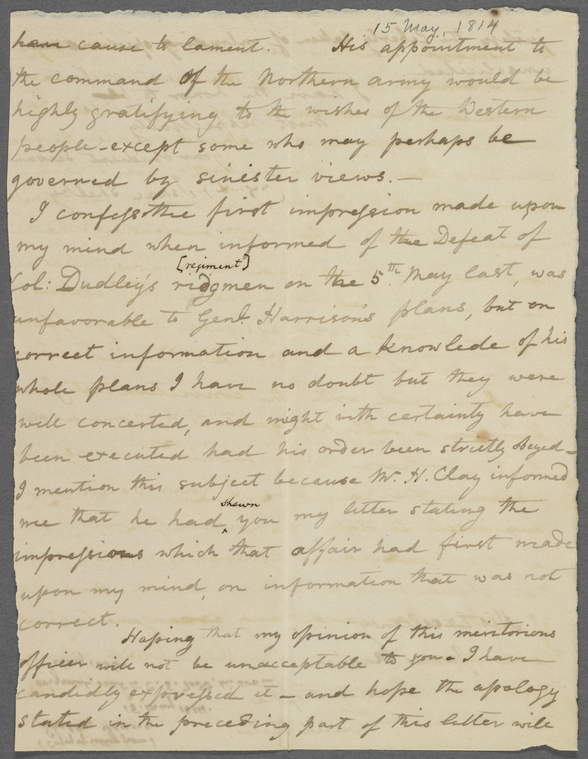 15 May, 1814
have cause to lament. His appointment to
the command of the Northern army would be
highly gratifying to the wishes of the Western
people - except some who may perhaps be
governed by sinister views. -
I confess the first impression made upon
my mind when informed of the Defeat of
[regiment]
Col: Dudley's ridgmen on the 5th May last, was
unfavorable to Genl. Harrison's plans, but on
correct information and a knowlede of his
whole plans I have no doubt but they were
well concerted, and might with certainty have
been executed had his order been strictly obeyed -
I mention this subject because Mr. H. Clay informed
shewn
me that he had ^ you my letter stating the
impressions which that affair had first made
upon my mind, on information that was not
correct.
Hoping that my opinion of this meritorious
officer will not be unacceptable to you - I have
candidly expressed it - and hope the apology
stated in the preceding part of this letter will